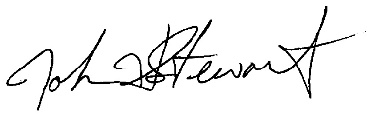 John Stewart